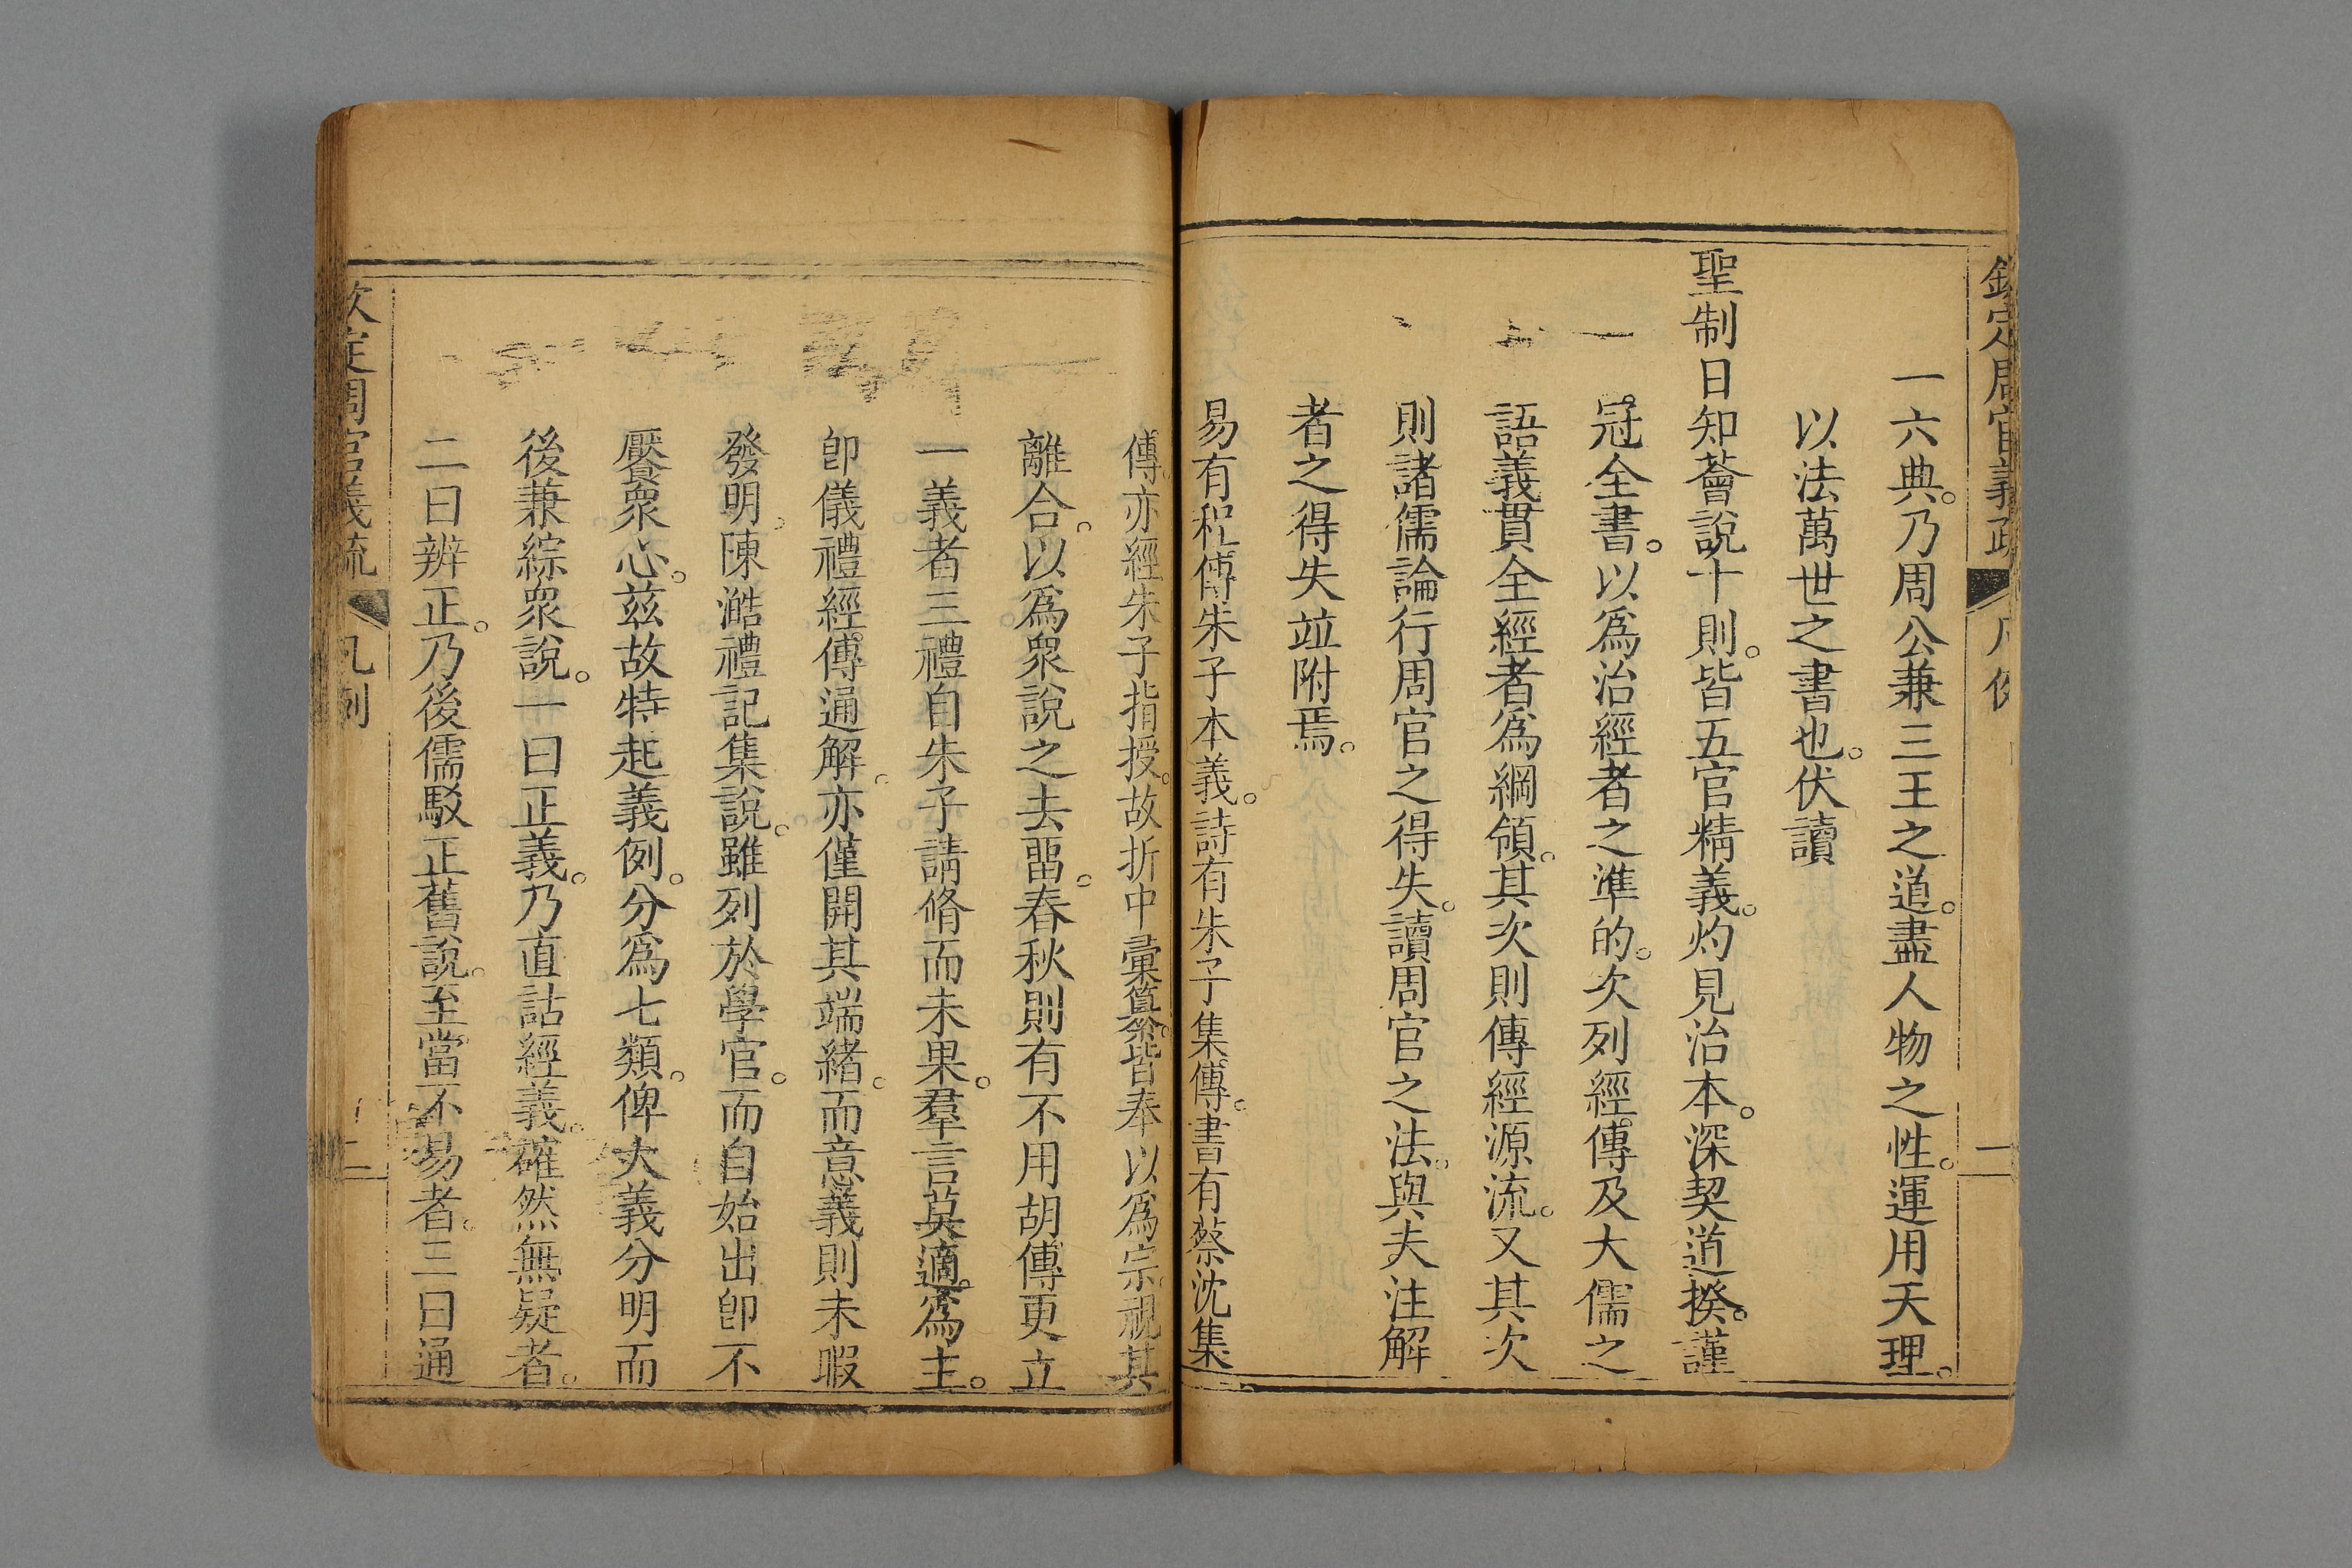 欽定周官義疏 凡例 一
一六典。乃周公兼三王之道。盡人物之性。運用天理。
以法萬世之書也。伏讀
聖制日知薈說十則。皆五官精義。灼見治本。深契道揆。謹
冠全書。以爲治經者之準的。次列經傳及大儒之
語義貫全經者爲綱領。其次則傳經源流。又其次
則諸儒論行周官之得失。讀周官之法。與夫注解
者之得失竝附焉。
易有程傳朱子本義。詩有朱子集傳。書有蔡沈集
傳。亦經朱子指授。故折中彙纂。皆奉以爲宗。視其
離合。以爲衆說之去畱。春秋則有不用胡傳更立
一義者三禮自朱子請脩而未果。羣言莫適爲主。
卽儀禮經傳通解。亦僅開其端緒。而意義則未暇
發明。陳澔禮記集說。雖列於學官。而自始出卽不
饜衆心。兹故特起義例。分爲七類。俾大義分明而
後兼綜衆說。一曰正義。乃直詁經義。確然無疑者。
二曰辨正。乃後儒駁正舊說。至當不易者。三曰通
欽定周官義疏 凡例 二